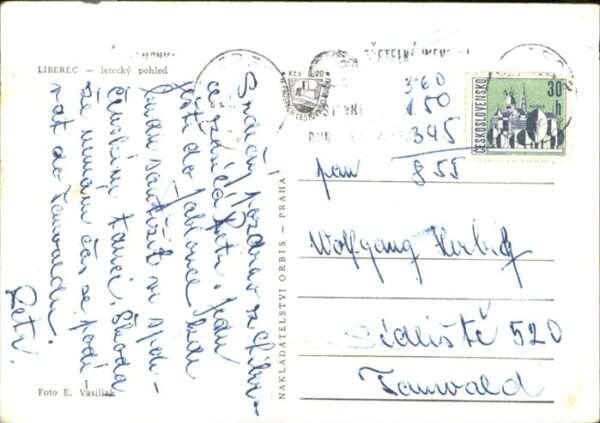 LIBEREC – letecký pohled
Srdečný pozdrav z Liber-
ce zasílá Petr. Jedu
ještě do Jablonce. Budu
soutěžit ve spole-
čenským tanci. Škoda
že nemám čas se podí-
vat do Tanvaldu.
Petr.
Foto E. Vasiliak
NAKLADATELSTVÍ ORBIS – PRAHA
ČESKOSLOVENSKO
30
h
3.60
1.50
345
855
pan
Wolfgang
Sídliště 520
Tanwald